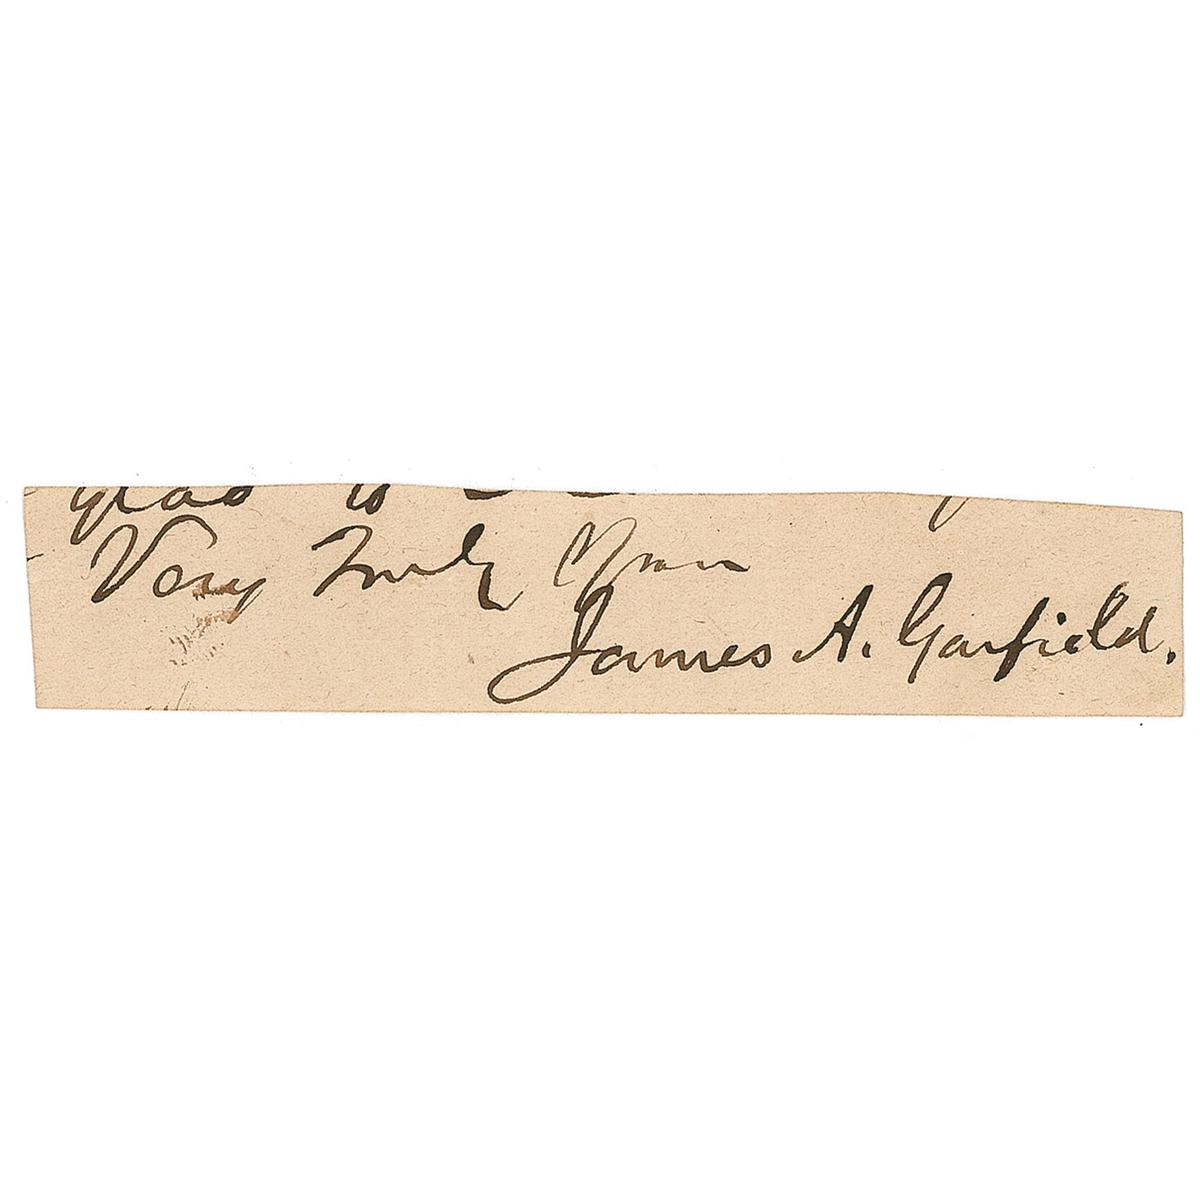 glad to
Very Truly Yours
James A. Garfield.